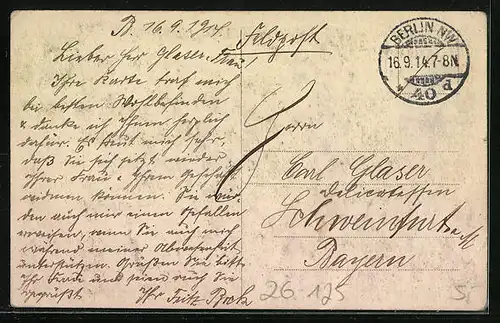 B. 16.9.1914.
Feldpost
Lieber Herr Glaser & Frau!
Ihre Karte traf mich
bei bestem Wohlbefinden
& danke ich Ihnen herzlich
dafür. Es freut mich sehr,
daß Sie sich jetzt wieder
Ihrer Frau & Ihrem Geschäft
widmen können. Sie wür-
den auch mir einen Gefallen
erweisen, wenn Sie auch mich
während meiner Abwesenheit
unterstützen. Grüßen Sie bitte
Ihre Frau und seien auch Sie
gegrüßt
Ihr Fritz
BERLIN NW
16.9.14.7-8N.
* 40 d
Herrn
Carl Glaser
Delicatessen
Schweinfurt a/M
Bayern
26.175